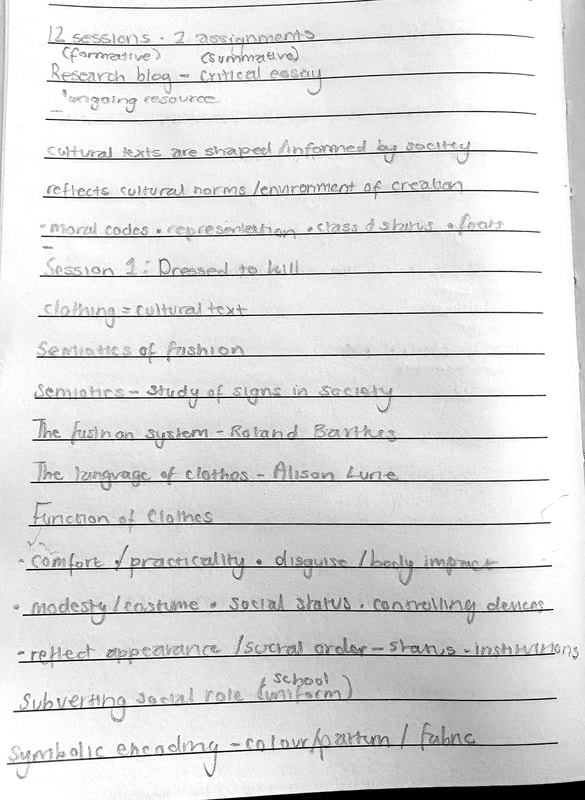 12 sessions - 2 assignments
(formative) (summative)
Research blog - critical essay
ongoing resource
cultural texts are shaped/informed by society
reflects cultural norms/environment of creation
- moral codes • representation • class & status • fears
Session 1: Dressed to kill
clothing = cultural text
Semiotics of fashion
Semiotics - study of signs in society
The fashion system - Roland Barthes
The language of clothes - Alison Lurie
Function of Clothes
• comfort • /practicality • disguise/body impact
• modesty/costume • social status • controlling devices
- reflect appearance /social order - status - institutions
school
Subverting social role (uniform)
symbolic encoding - colour/pattern / fabric